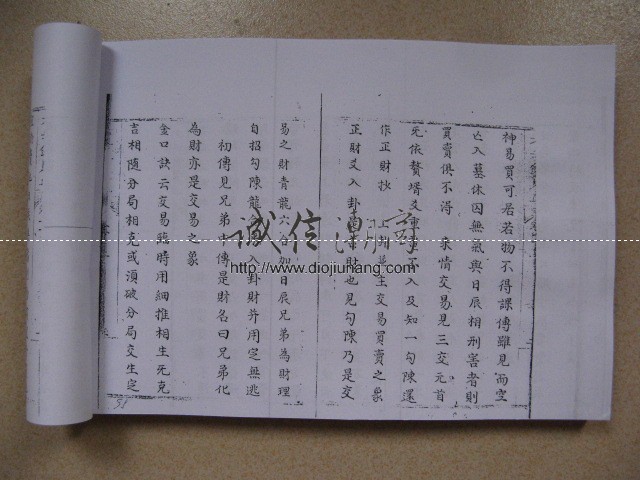 神易買可居若物不得課傳雖見而空
亡入墓休囚無氣與日辰相刑害者則
買賣俱不得 求情交易見三交元首
死依贅壻爻重 不入及知一勾陳還
作正財抄 上卦 生交易買賣之象
正財爻入卦 財也見勾陳乃是交
易之財青龍六合如日辰兄弟為財理
自招勾陳龍 入卦財并用定無逃
初傳見兄弟中傳是財名曰兄弟化
為財亦是交易之象
金口訣云交易臨時用細推相生死克
吉相隨分局相克或須破分局交生定
誠信潮
http://www.diojiuhang.com
51